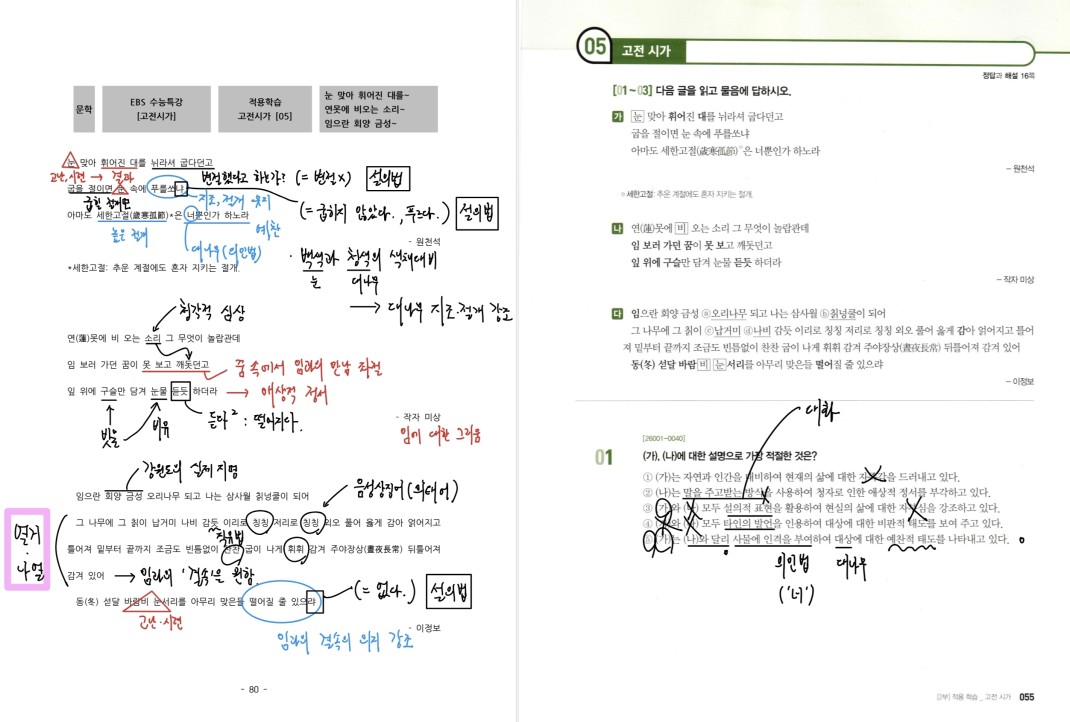 문학
EBS 수능특강
[고전시가]
적용학습
고전시가 [05]
눈 맞아 휘어진 대를~
연못에 비오는 소리~
임으란 회양 금성~
눈 맞아 휘어진 대를 뉘라셔 굽다던고
고난, 시련 → 결과
변절했다고 하는가? (= 변절X)
설의법
굽을 절이면 눈 속에 푸를쏘냐
굽힐 절개면
지조, 절개 유지
(= 굽히지 않았다., 푸르다.)
설의법
아마도 세한고절(歲寒孤節)*은 너뿐인가 하노라
높은 절개
대나무(의인법)
예찬
- 원천석
*세한고절: 추운 계절에도 혼자 지키는 절개.
· 백색과 청색의 색채대비
눈 대나무
→ 대나무 지조·절개 강조
청각적 심상
연(蓮)못에 비 오는 소리 그 무엇이 놀랍관데
임 보러 가던 꿈이 못 보고 깨돗던고
꿈 속에서 임과의 만남 좌절
잎 위에 구슬만 담겨 눈물 듣듯 하더라
→ 애상적 정서
빗물
비유
듣다²: 떨어지다.
- 작자 미상
임에 대한 그리움
강원도의 실제 지명
임으란 회양 금성 오리나무 되고 나는 삼사월 칡넝쿨이 되어
음성상징어(의태어)
그 나무에 그 칡이 납거미 나비 감듯 이리로 칭칭 저리로 칭칭 외오 풀어 옳게 감아 얽어지고
직유법
틀어져 밑부터 끝까지 조금도 빈틈없이 찬찬 굽이 나게 휘휘 감겨 주야장상(晝夜長常) 뒤틀어져
감겨 있어
→ 임과의 '결속'을 원함.
열거
·
나열
동(冬) 섣달 바람비 눈서리를 아무리 맞은들 떨어질 줄 있으랴
(= 없다.)
설의법
고난·시련
- 이정보
임과의 결속의 의지 강조
- 80 -
05 고전 시가
정답과 해설 16쪽
[01~03] 다음 글을 읽고 물음에 답하시오.
가 눈 맞아 휘어진 대를 뉘라셔 굽다던고
굽을 절이면 눈 속에 푸를쏘냐
아마도 세한고절(歲寒孤節)*은 너뿐인가 하노라
- 원천석
*세한고절: 추운 계절에도 혼자 지키는 절개.
나 연(蓮)못에 비 오는 소리 그 무엇이 놀랍관데
임 보러 가던 꿈이 못 보고 깨돗던고
잎 위에 구슬만 담겨 눈물 듣듯 하더라
- 작자 미상
다 임으란 회양 금성 ⓐ오리나무 되고 나는 삼사월 ⓑ칡넝쿨이 되어
그 나무에 그 칡이 ⓒ납거미 ⓓ나비 감듯 이리로 칭칭 저리로 칭칭 외오 풀어 옳게 감아 얽어지고 틀어
져 밑부터 끝까지 조금도 빈틈없이 찬찬 굽이 나게 휘휘 감겨 주야장상(晝夜長常) 뒤틀어져 감겨 있어
동(冬) 섣달 바람 비 눈 서리를 아무리 맞은들 떨어질 줄 있으랴
- 이정보
대화
[26001-0040]
01 (가), (나)에 대한 설명으로 가장 적절한 것은?
① (가)는 자연과 인간을 대비하여 현재의 삶에 대한 자긍심을 드러내고 있다.
② (나)는 말을 주고받는 방식을 사용하여 청자로 인한 애상적 정서를 부각하고 있다.
③ (가)와 (나) 모두 설의적 표현을 활용하여 현실의 삶에 대한 자긍심을 강조하고 있다.
④ (가)와 (나) 모두 타인의 발언을 인용하여 대상에 대한 비판적 태도를 보여 주고 있다.
⑤ (가)는 (나)와 달리 사물에 인격을 부여하여 대상에 대한 예찬적 태도를 나타내고 있다.
의인법
('너')
대나무
[1부] 적용 학습 _ 고전 시가 055